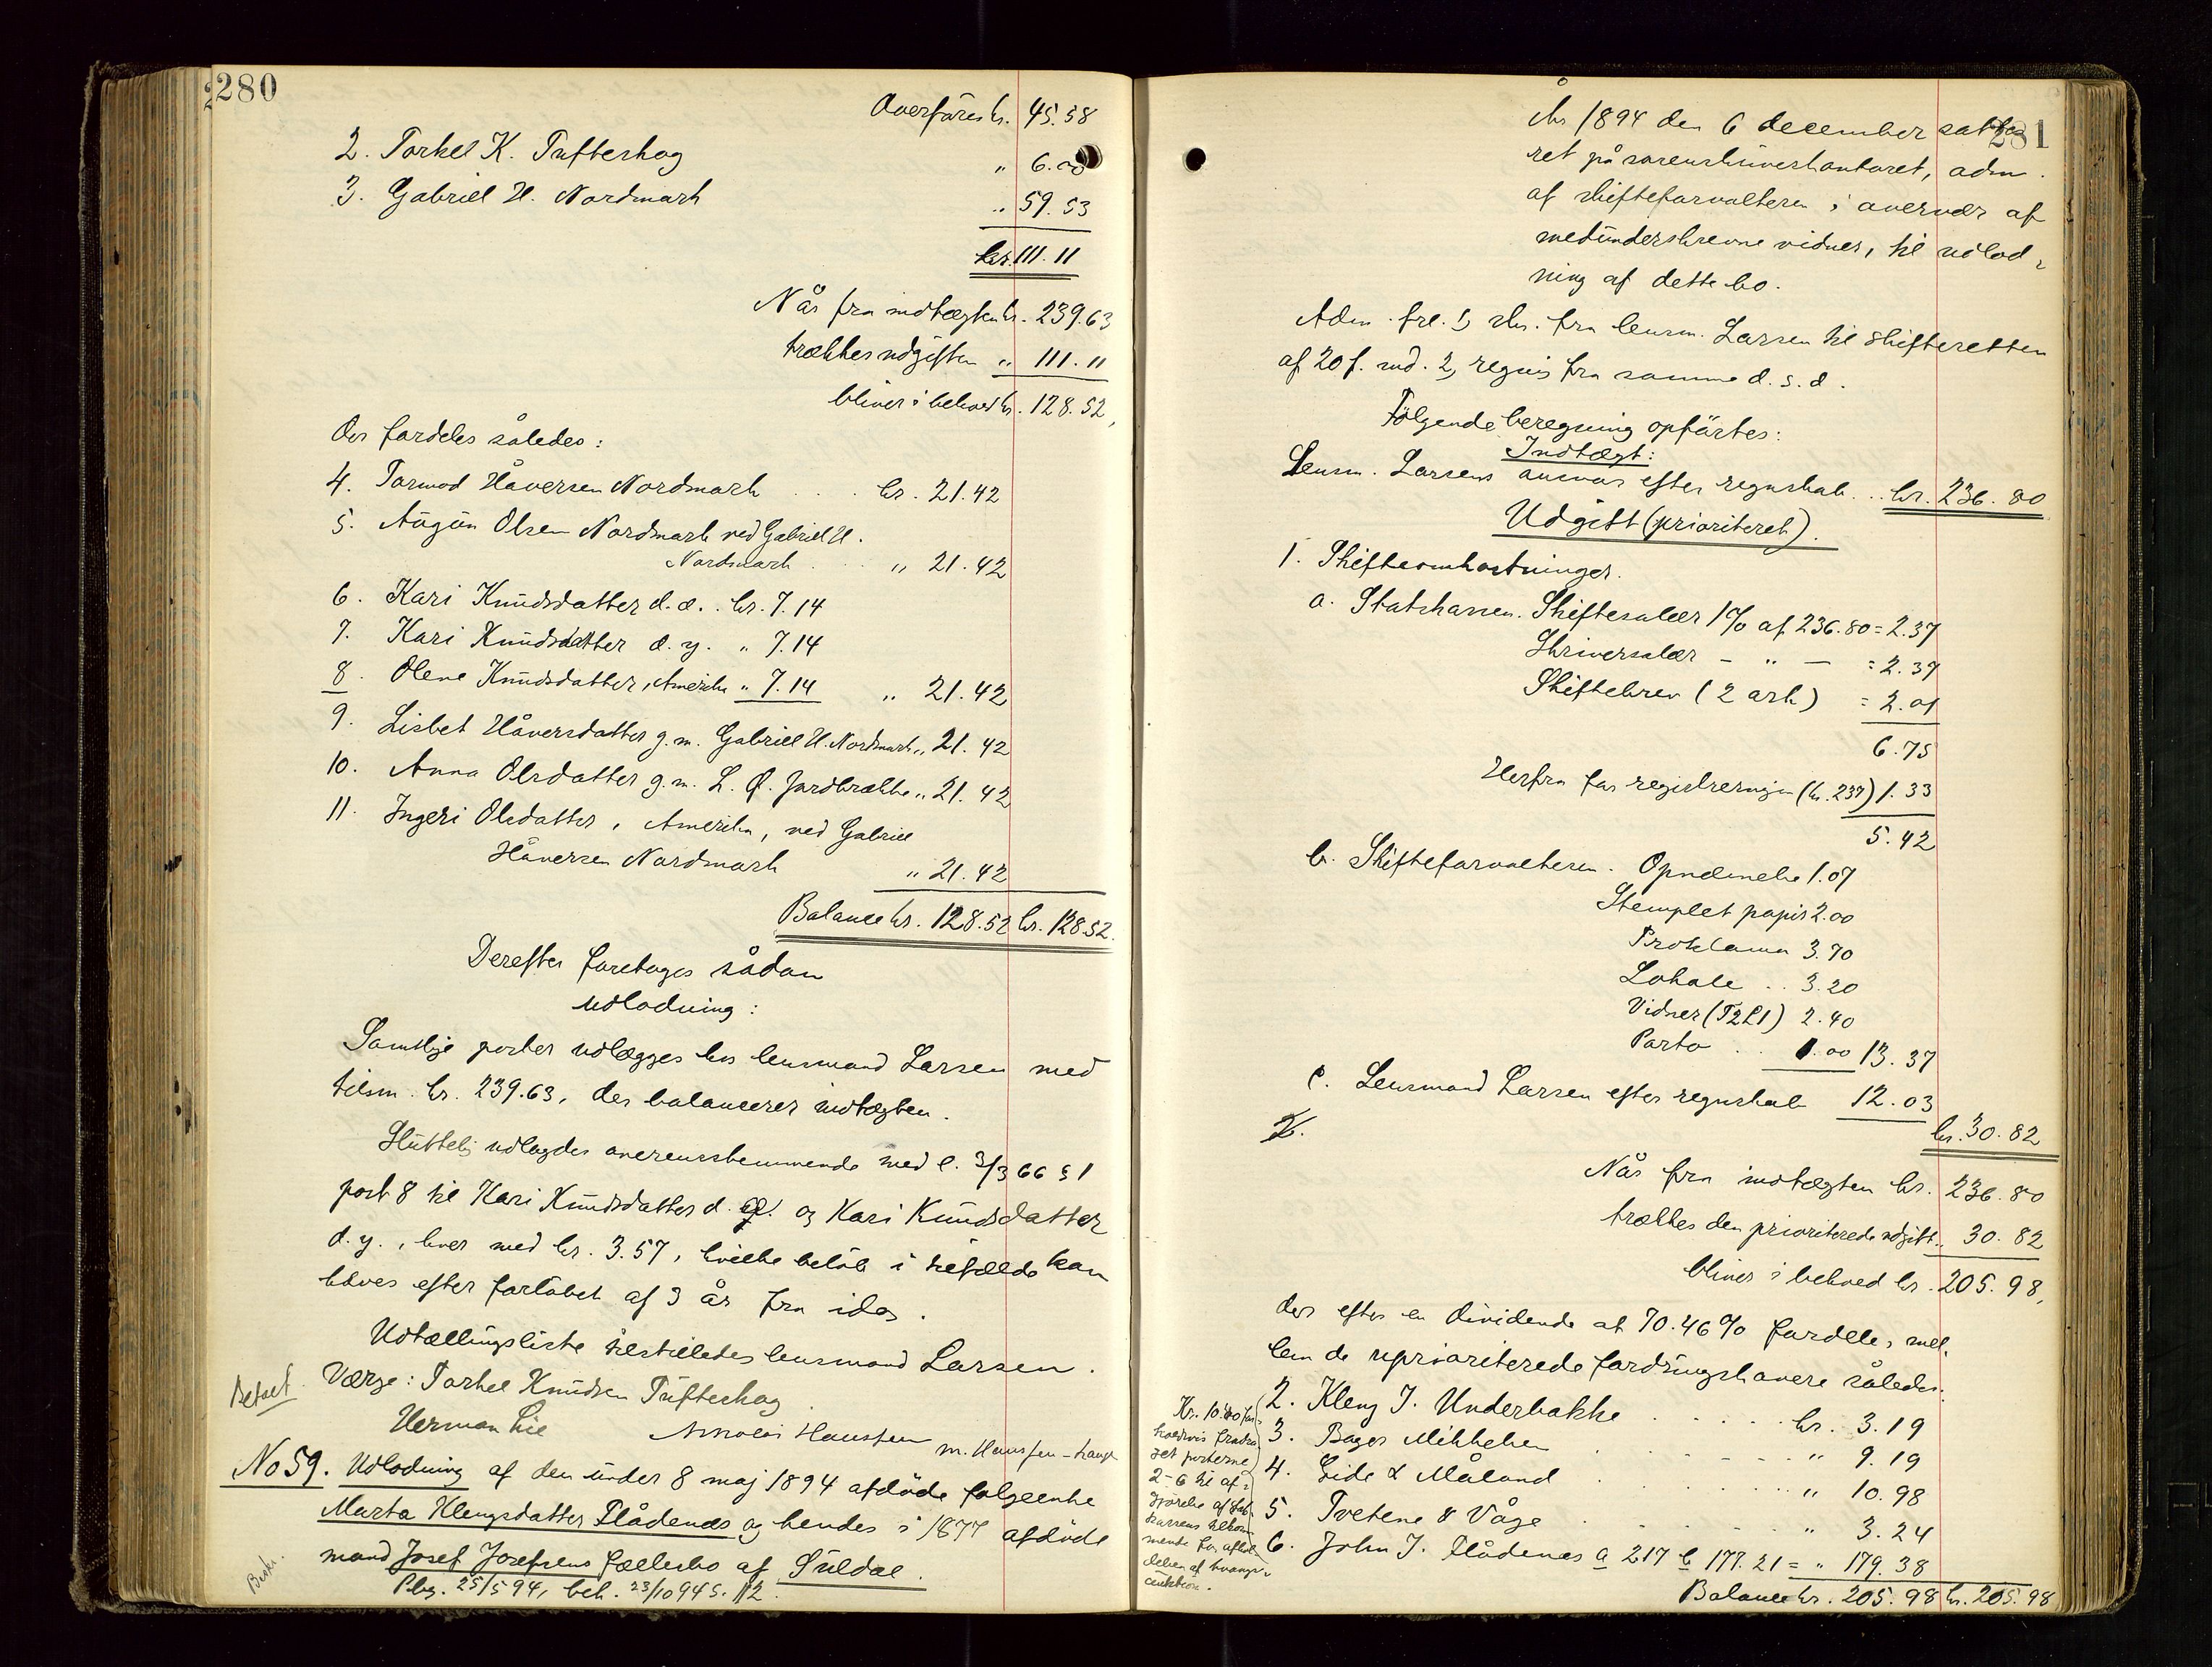 280
Overføres kr. 45.58
2. Torkel K. Tufteskog „ 6.00
3. Gabriel H. Nordmark „ 59.53
kr. 111.11
Når fra indtægten kr. 239.63
trækkes udgiften „ 111.11
bliver i behold kr. 128.52,
der fordeles således:
4. Tormod Håversen Nordmark . . . kr. 21.42
5. Augun Olsen Nordmark ved Gabriel H.
Nordmark . . . „ 21.42
6. Kari Knudsdatter d. æ. . kr. 7.14
7. Kari Knudsdatter d. y. „ 7.14
8. Olene Knudsdatter, Amerika „ 7.14 „ 21.42
9. Lisbet Håversdatter g. m. Gabriel H. Nordmark „ 21.42
10. Anna Olsdatter g. m. L. O. Jordbrække „ 21.42
11. Ingeri Olsdatter, Amerika, ved Gabriel
Håversen Nordmark „ 21.42
Balance kr. 128.52 kr. 128.52.
Derefter foretoges sådan
udlodning:
Samtlige poster udlægges hos lensmand Larsen med
tilsm. kr. 239.63, der balancerer indtægten.
Sluttelig udlagdes overensstemmende med l. 3/3 66 § 1
post 8 til Kari Knudsdatter d. æ. og Kari Knudsdatter
d. y., hver med kr. 3.57, hvilke beløb i tilfælde kan
hæves efter forløbet af 3 år fra idag.
Udtællingsliste tilstilledes lensmand Larsen.
Værge: Torkel Knudsen Tufteskog
Herman Lie
No 59. Udlodning af den under 8 maj 1894 afdøde følgeenke
Marta Klengsdatter Flådenæs og hendes i 1877 afdøde
mand Josef Josefsens fællesbo af Suldal.
Pbg. 25/5 94, beh. 23/10 94 s. 112.
281
År 1894 den 6 december sattes
ret på sorenskriverkontoret, adm.
af skifteforvalteren i overvær af
medunderskrevne vidner, til udlod-
ning af dette bo.
Adm. frl. 1, skr. fra lensm. Larsen til skifteretten
af 20 f. md. 2, regnis fra samme d. s. d.
Følgende beregning opførtes:
Indtægt:
Lensm. Larsens ansvar efter regnskab . . . kr. 236.80
Udgift (prioriteret).
1. Skifteomkostninger.
a. Statskassen. Skiftesalær 1% af 236.80 = 2.37
Skriversalær – „ – = 2.37
Skiftebrev (2 ark) = 2.01
6.75
Herfra for registreringen (kr. 237) 1.33
5.42
b. Skifteforvalteren. Opnævnelse 1.07
Stemplet papir 2.00
Proklama 3.70
Lokale . . 3.20
Vidner (T2L1) 2.40
Porto . . 1.00 13.37
c. Lensmand Larsen efter regnskab 12.03
kr. 30.82
Når fra indtægten kr. 236.80
trækkes den prioriterede udgift „ 30.82
bliver i behold kr. 205.98,
der efter en dividende at 70.46% fordeles mel-
lem de uprioriterede fordringshavere således:
2. Kleng J. Underbakke . . . . kr. 3.19
3. Bager Mikkelsen . . . . „ 9.19
4. Eide & Måland . . . . „ 10.98
5. Tvetene & Våge . . . . „ 3.24
6. John J. Flådenes a 217 b 177.21 = „ 179.38
Balance kr. 205.98 kr. 205.98